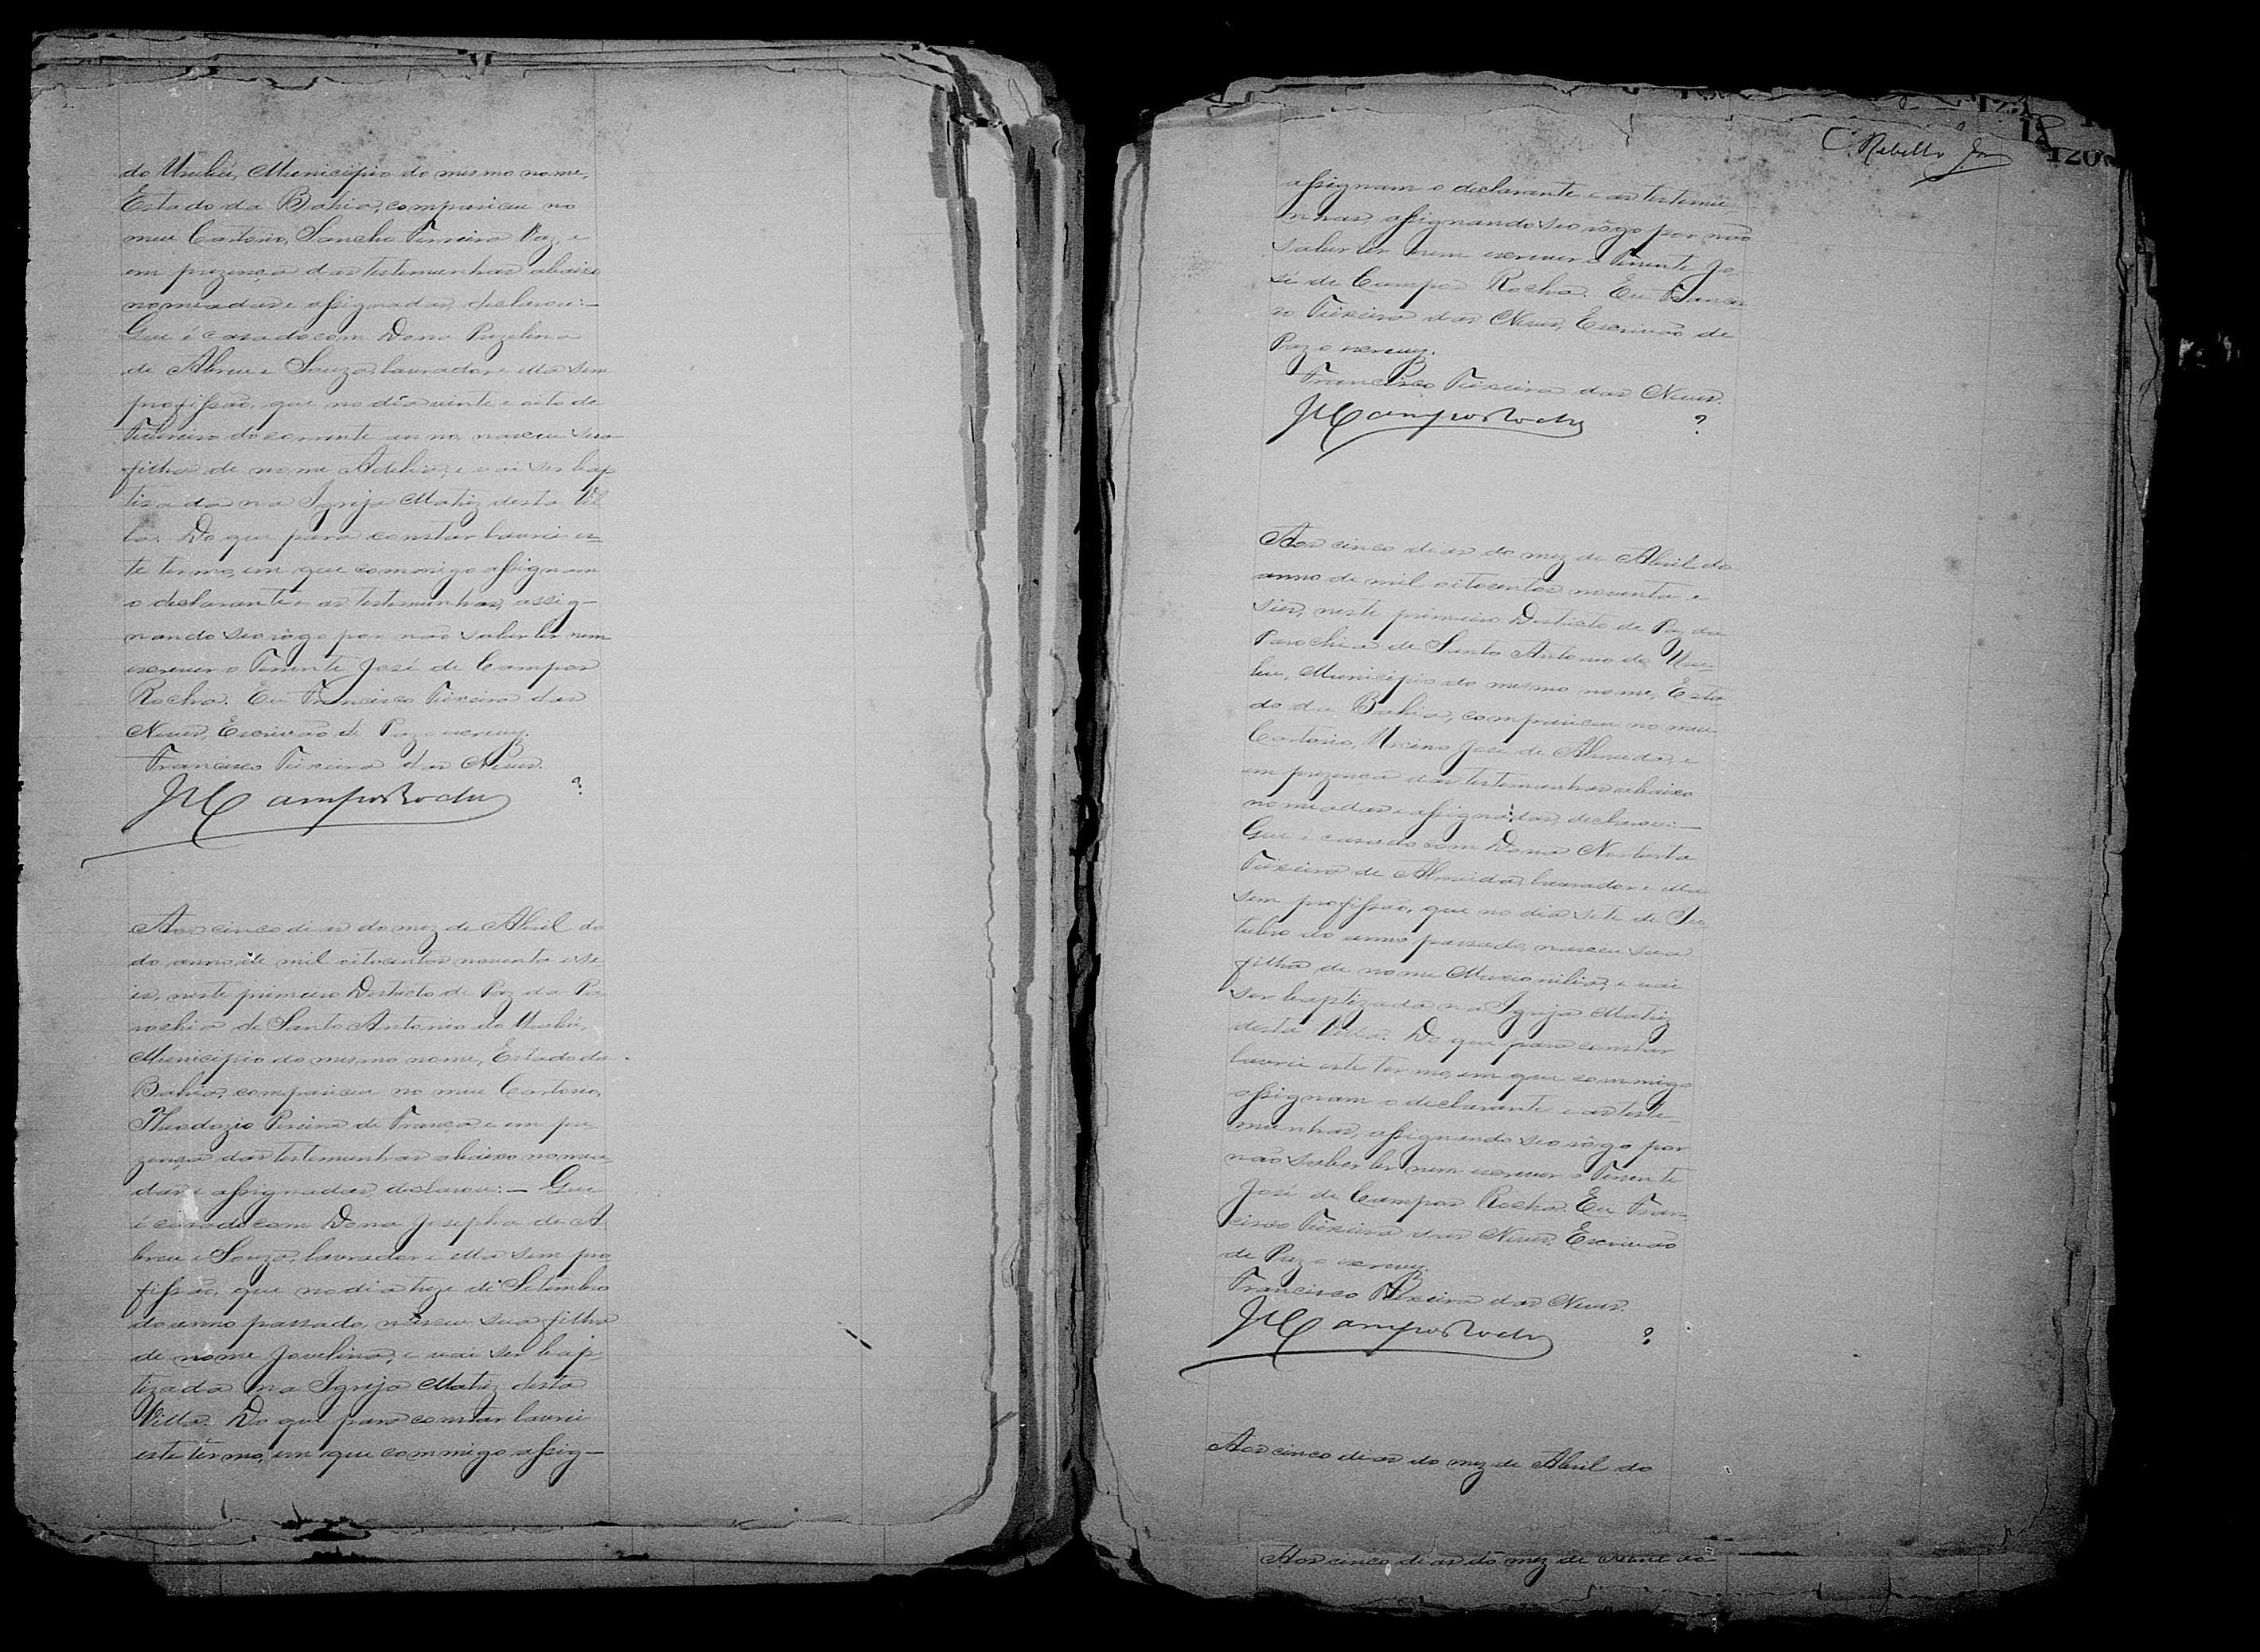 do Urubú, Municipio do mesmo nome,
Estado da Bahia, compareceu no
meu Cartorio, Sancho Ferreira Vaz e
em prezença das testemunhas abaixo
nomeadas e assignadas, declarou:—
Que é casado com Dona
de Abreu e Souza, lavrador e ella sem
profissão, que no dia vinte e oito de
Fevereiro do corrente anno, nasceu sua
filha de nome Adelia, e vai ser bap-
tisada na Igreja Matriz desta Vil
la. Do que para constar lavrei es-
te termo, em que commigo assignam
o declarante e as testemunhas, assig-
nando seo rôgo por não saber ler nem
escrever o Tenente José de Campos
Rocha. Eu Francisco Teixeira das
Neves, Escrivão de Paz o escrevy.
Francisco Teixeira das Neves.
JM CamposRocha
Aos cinco dias do mez de Abril do
do anno de mil oitocentos noventa e se
is, neste primeiro Destricto de Paz da Pa
rochia de Santo Antonio do Urubú,
Municipio do mesmo nome, Estado da
Bahia, compareceu no meu Cartorio,
Theodozio Pereira de França e em pre
zença das testemunhas abaixo nomea-
das e assignadas, declarou:— Que
é casado com Dona Josepha de A
breu e Souza, lavrador e ella sem pro
fissão, que no dia treze de Setembro
do anno passado, nasceu sua filha
de nome Jovelina, e vai ser bap-
tizada na Igreja Matriz desta
Villa. Do que para constar lavrei
este termo, em que commigo assig—
C. Rebello Jor
120
assignam o declarante e as testemu-
nhas, assignando seo rôgo por não
saber ler nem escrever o Tenente Jo
sé de Campos Rocha. Eu Francis-
co Teixeira das Neves, Escrivão de
Paz o escrevy.
Francisco Teixeira das Neves.
JM CamposRocha
Aos cinco dias do mez de Abril do
anno de mil oitocentos noventa e
seis, neste primeiro Destricto de Paz da
Parochia de Santo Antonio do Uru-
bú, Municipio do mesmo nome, Esta
do da Bahia, compareceu no meu
Cartorio, José de Almeida, e
em prezença das testemunhas abaixo
nomeadas e assignadas, declarou:—
Que é casado com Dona
Teixeira de Almeida, lavrador e ella
sem profissão, que no dia sete de
do anno passado, nasceu sua
filha de nome Maximilia, e vai
ser baptizada na Igreja Matriz
desta Villa. Do que para constar
lavrei este termo, em que commigo
assignam o declarante e as teste-
munhas, assignando seo rôgo por
não saber ler nem escrever o Tenente
José de Campos Rocha. Eu Fran-
cisco Teixeira das Neves, Escrivão
de Paz o escrevy.
Francisco Teixeira das Neves.
JM CamposRocha
Aos cinco dias do mez de Abril do
Aos cinco dias do mez de Abril do